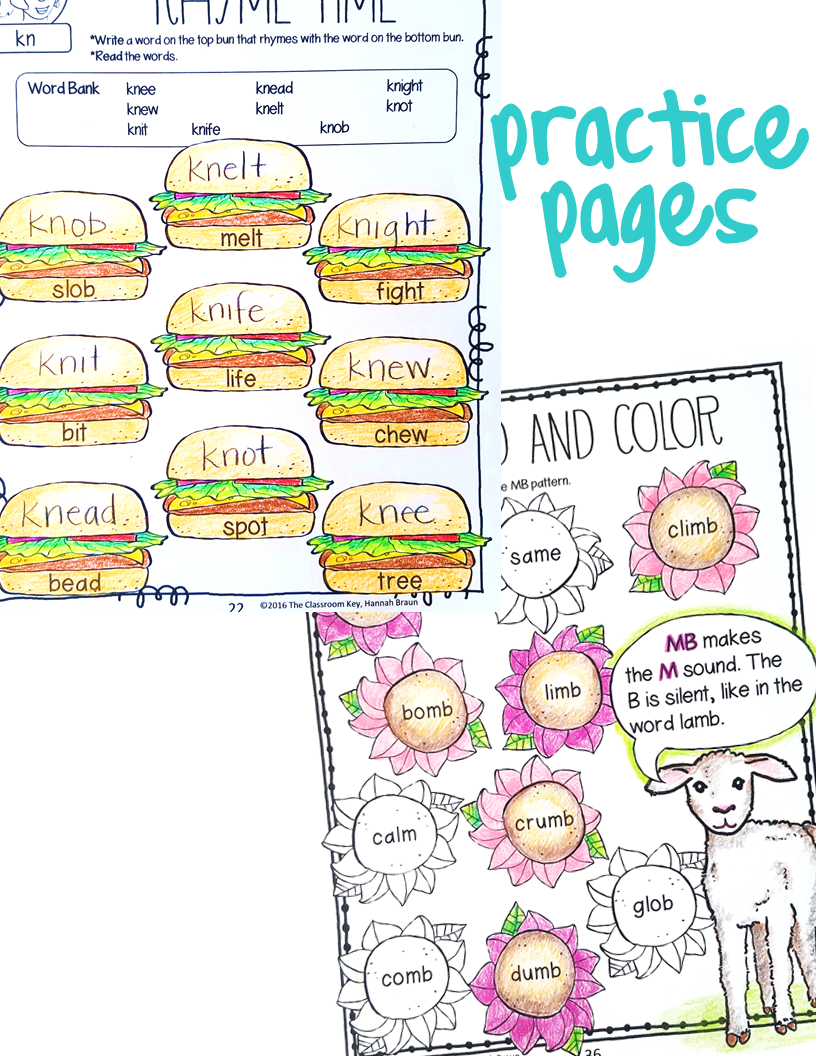 RHYME TIME
kn
*Write a word on the top bun that rhymes with the word on the bottom bun.
*Read the words.
Word Bank knee knead knight
knew knelt knot
knit knife knob
knelt
melt
knob
slob
knight
fight
knife
life
knit
bit
knew
chew
knot
spot
knead
bead
knee
tree
22 ©2016 The Classroom Key, Hannah Braun
practice
pages
AND COLOR
MB pattern.
same
climb
MB makes
the M sound. The
B is silent, like in the
word lamb.
bomb
limb
calm
crumb
glob
comb
dumb
36